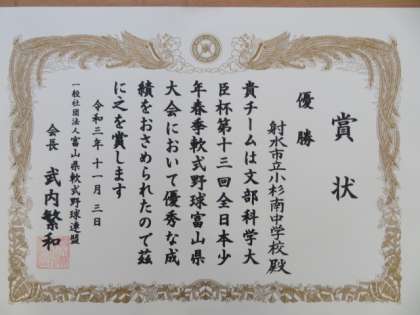 賞状
優勝
射水市立小杉南中学校殿
貴チームは文部科学大
臣杯第十三回全日本少
年春季軟式野球富山県
大会において優秀な成
績をおさめられたので茲
に之を賞します
令和三年十一月三日
一般社団法人富山県軟式野球連盟
会長 武内繁和